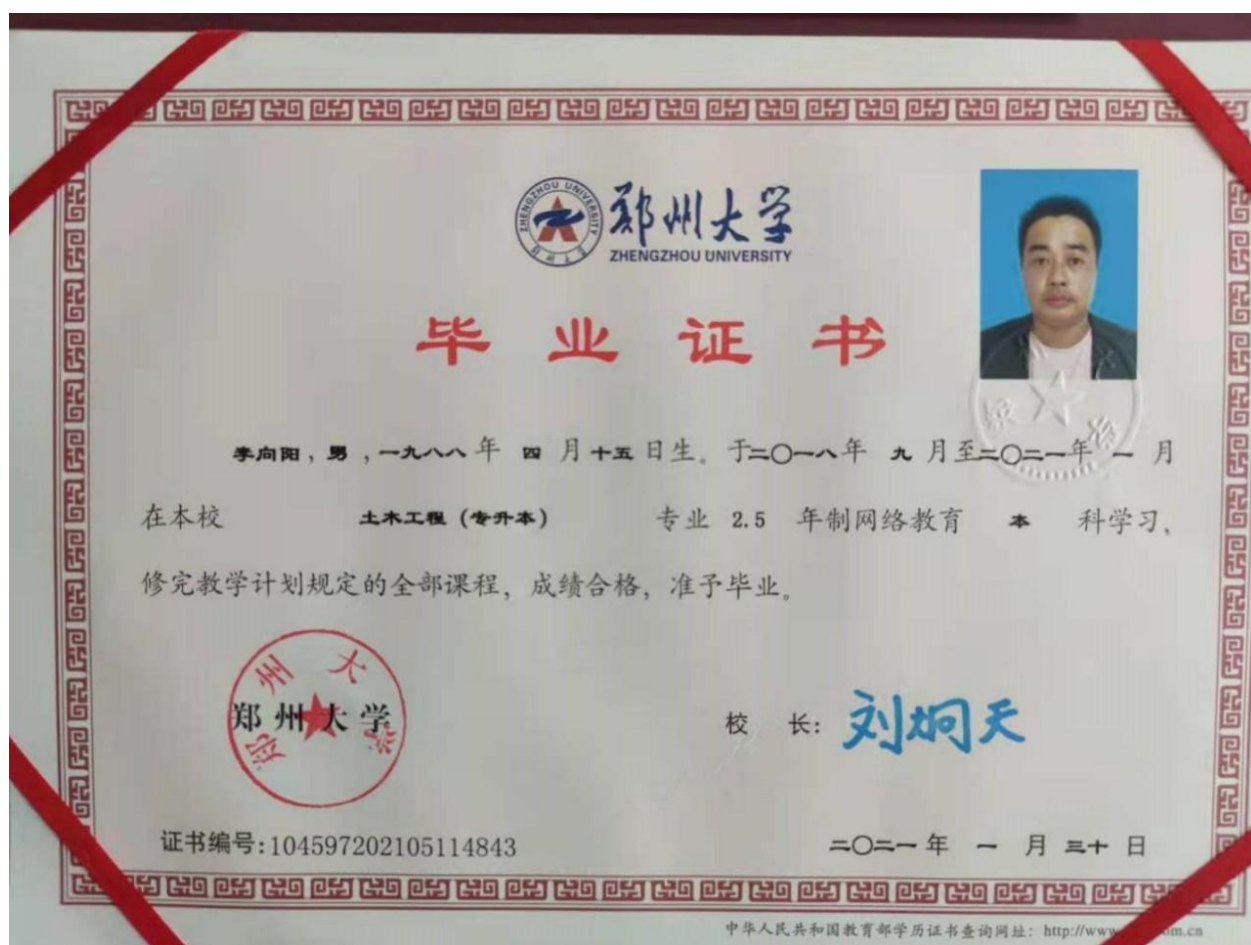 ZHENGZHOU UNIVERSITY
郑州大学
郑州大学
ZHENGZHOU UNIVERSITY
毕业证书
李向阳，男，一九八八年 四 月十五日生。于二〇一八年 九 月至二〇二一年 一 月
在本校 土木工程（专升本） 专业 2.5 年制网络教育 本 科学习，
修完教学计划规定的全部课程，成绩合格，准予毕业。
郑州大学
郑州大学
校 长：刘炯天
证书编号:104597202105114843
二〇二一年 一 月 三十 日
中华人民共和国教育部学历证书查询网址：http://www. .com.cn